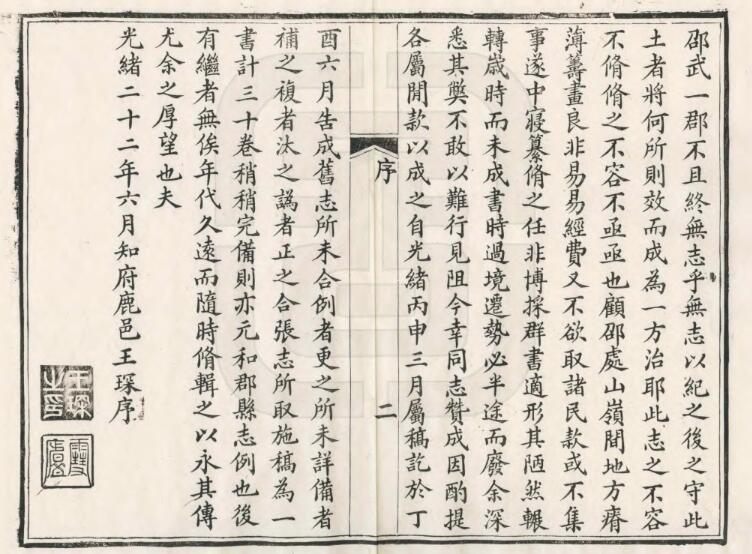 邵武一郡不且終無志乎無志以紀之後之守此
土者將何所則效而成為一方治耶此志之不容
不脩脩之不容不亟亟也顧邵處山嶺間地方瘠
薄籌畫良非易易經費又不欲取諸民款或不集
事遂中寢纂脩之任非博採群書適形其陋然輾
轉歲時而未成書時過境遷勢必半途而廢余深
悉其獘不敢以難行見阻今幸同志贊成因酌提
各屬閒款以成之自光緒丙申三月屬稿訖於丁
序
二
酉六月告成舊志所未合例者更之所未詳備者
補之複者汰之譌者正之合張志所取施稿為一
書計三十卷稍稍完備則亦元和郡縣志例也後
有繼者無俟年代久遠而隨時脩輯之以永其傳
尤余之厚望也夫
光緒二十二年六月知府鹿邑王琛序
王琛之印
雪廬